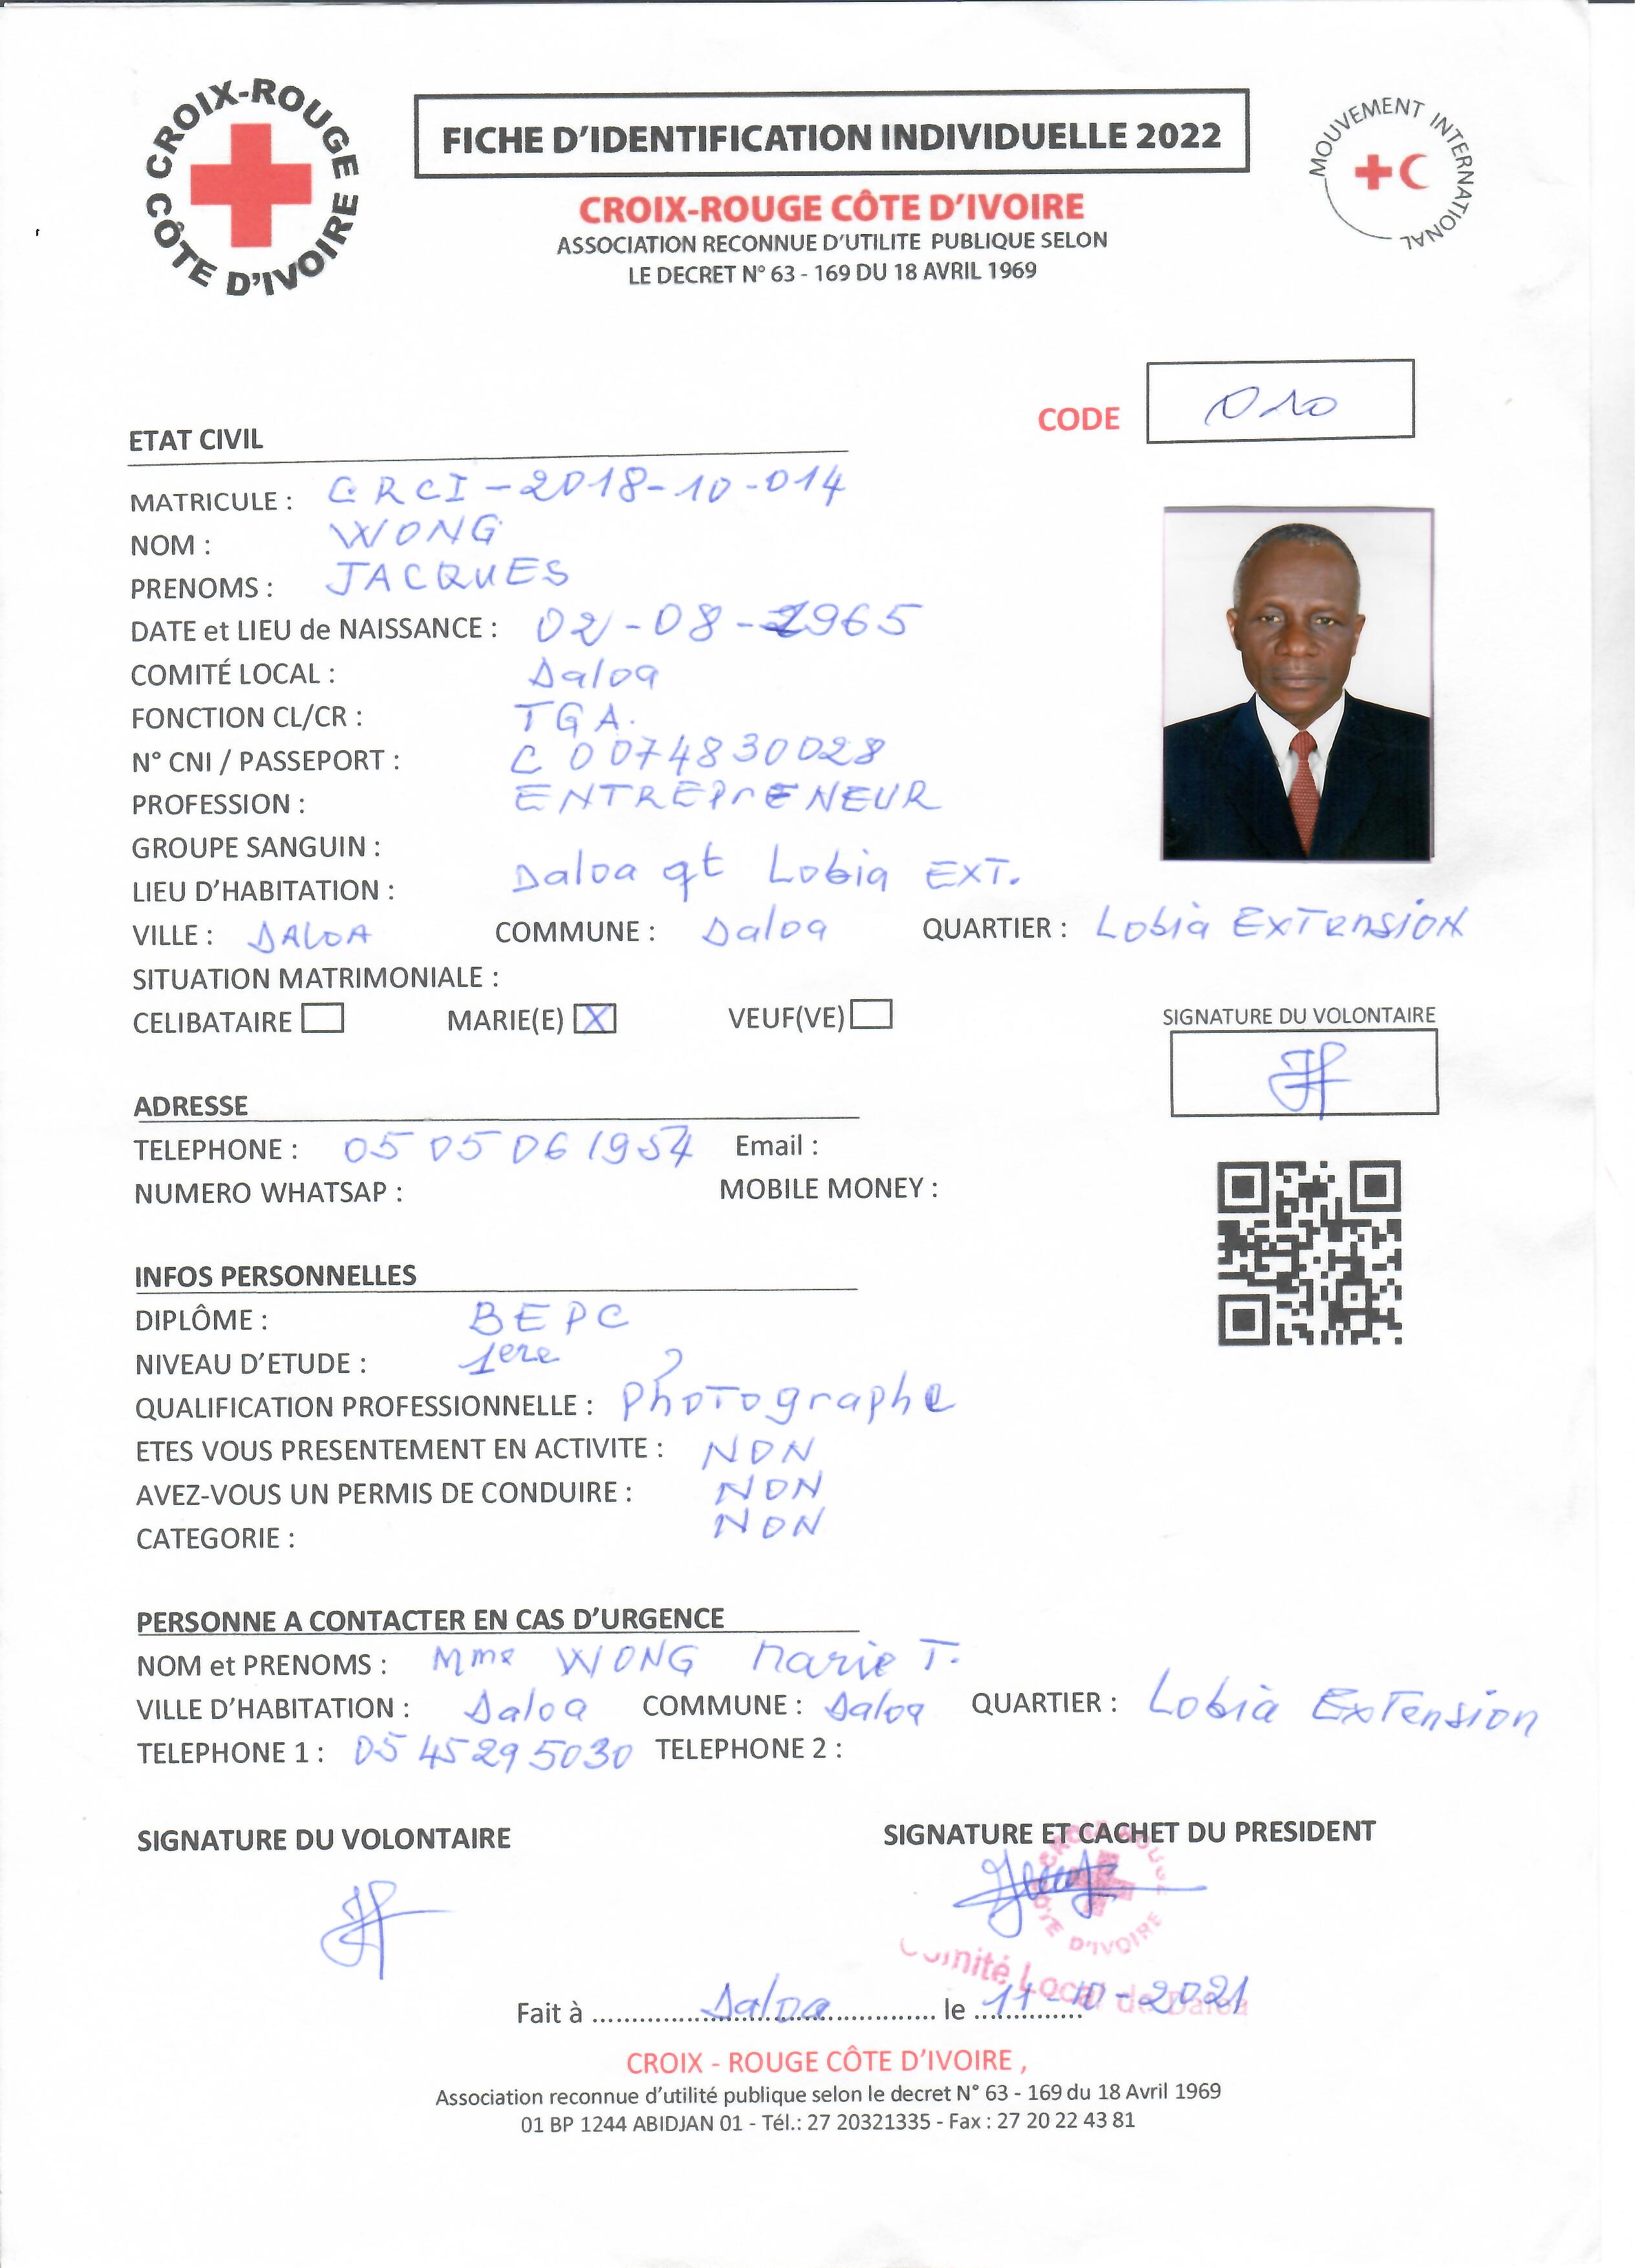 CROIX-ROUGE CÔTE D'IVOIRE
FICHE D'IDENTIFICATION INDIVIDUELLE 2022
MOUVEMENT INTERNATIONAL
CROIX-ROUGE CÔTE D'IVOIRE
ASSOCIATION RECONNUE D'UTILITE PUBLIQUE SELON
LE DECRET N° 63 - 169 DU 18 AVRIL 1969
CODE 010
ETAT CIVIL
MATRICULE : CRCI-2018-10-014
NOM : WONG
PRENOMS : JACQUES
DATE et LIEU de NAISSANCE : 02-08-1965
COMITÉ LOCAL : Daloa
FONCTION CL/CR : TGA.
N° CNI / PASSEPORT : C 0074830028
PROFESSION : ENTREPrENEUR
GROUPE SANGUIN :
LIEU D'HABITATION : Daloa qt Lobia EXT.
VILLE : DALOA COMMUNE : Daloa QUARTIER : Lobia ExTension
SITUATION MATRIMONIALE :
CELIBATAIRE MARIE(E) X VEUF(VE)
SIGNATURE DU VOLONTAIRE
ADRESSE
TELEPHONE : 05 05 06 1954 Email :
NUMERO WHATSAP : MOBILE MONEY :
INFOS PERSONNELLES
DIPLÔME : BEPC
NIVEAU D'ETUDE : 1ere
QUALIFICATION PROFESSIONNELLE : Photographe
ETES VOUS PRESENTEMENT EN ACTIVITE : NON
AVEZ-VOUS UN PERMIS DE CONDUIRE : NON
CATEGORIE : NON
PERSONNE A CONTACTER EN CAS D'URGENCE
NOM et PRENOMS : Mme WONG Marie T.
VILLE D'HABITATION : Daloa COMMUNE : Daloa QUARTIER : Lobia ExTension
TELEPHONE 1 : 05 45 29 5030 TELEPHONE 2 :
SIGNATURE DU VOLONTAIRE SIGNATURE ET CACHET DU PRESIDENT
CROIX ROUGE CÔTE D'IVOIRE
Comité Local de Daloa
Fait à .......... Daloa .......... le 11-10-2021
CROIX - ROUGE CÔTE D'IVOIRE ,
Association reconnue d'utilité publique selon le decret N° 63 - 169 du 18 Avril 1969
01 BP 1244 ABIDJAN 01 - Tél.: 27 20321335 - Fax : 27 20 22 43 81